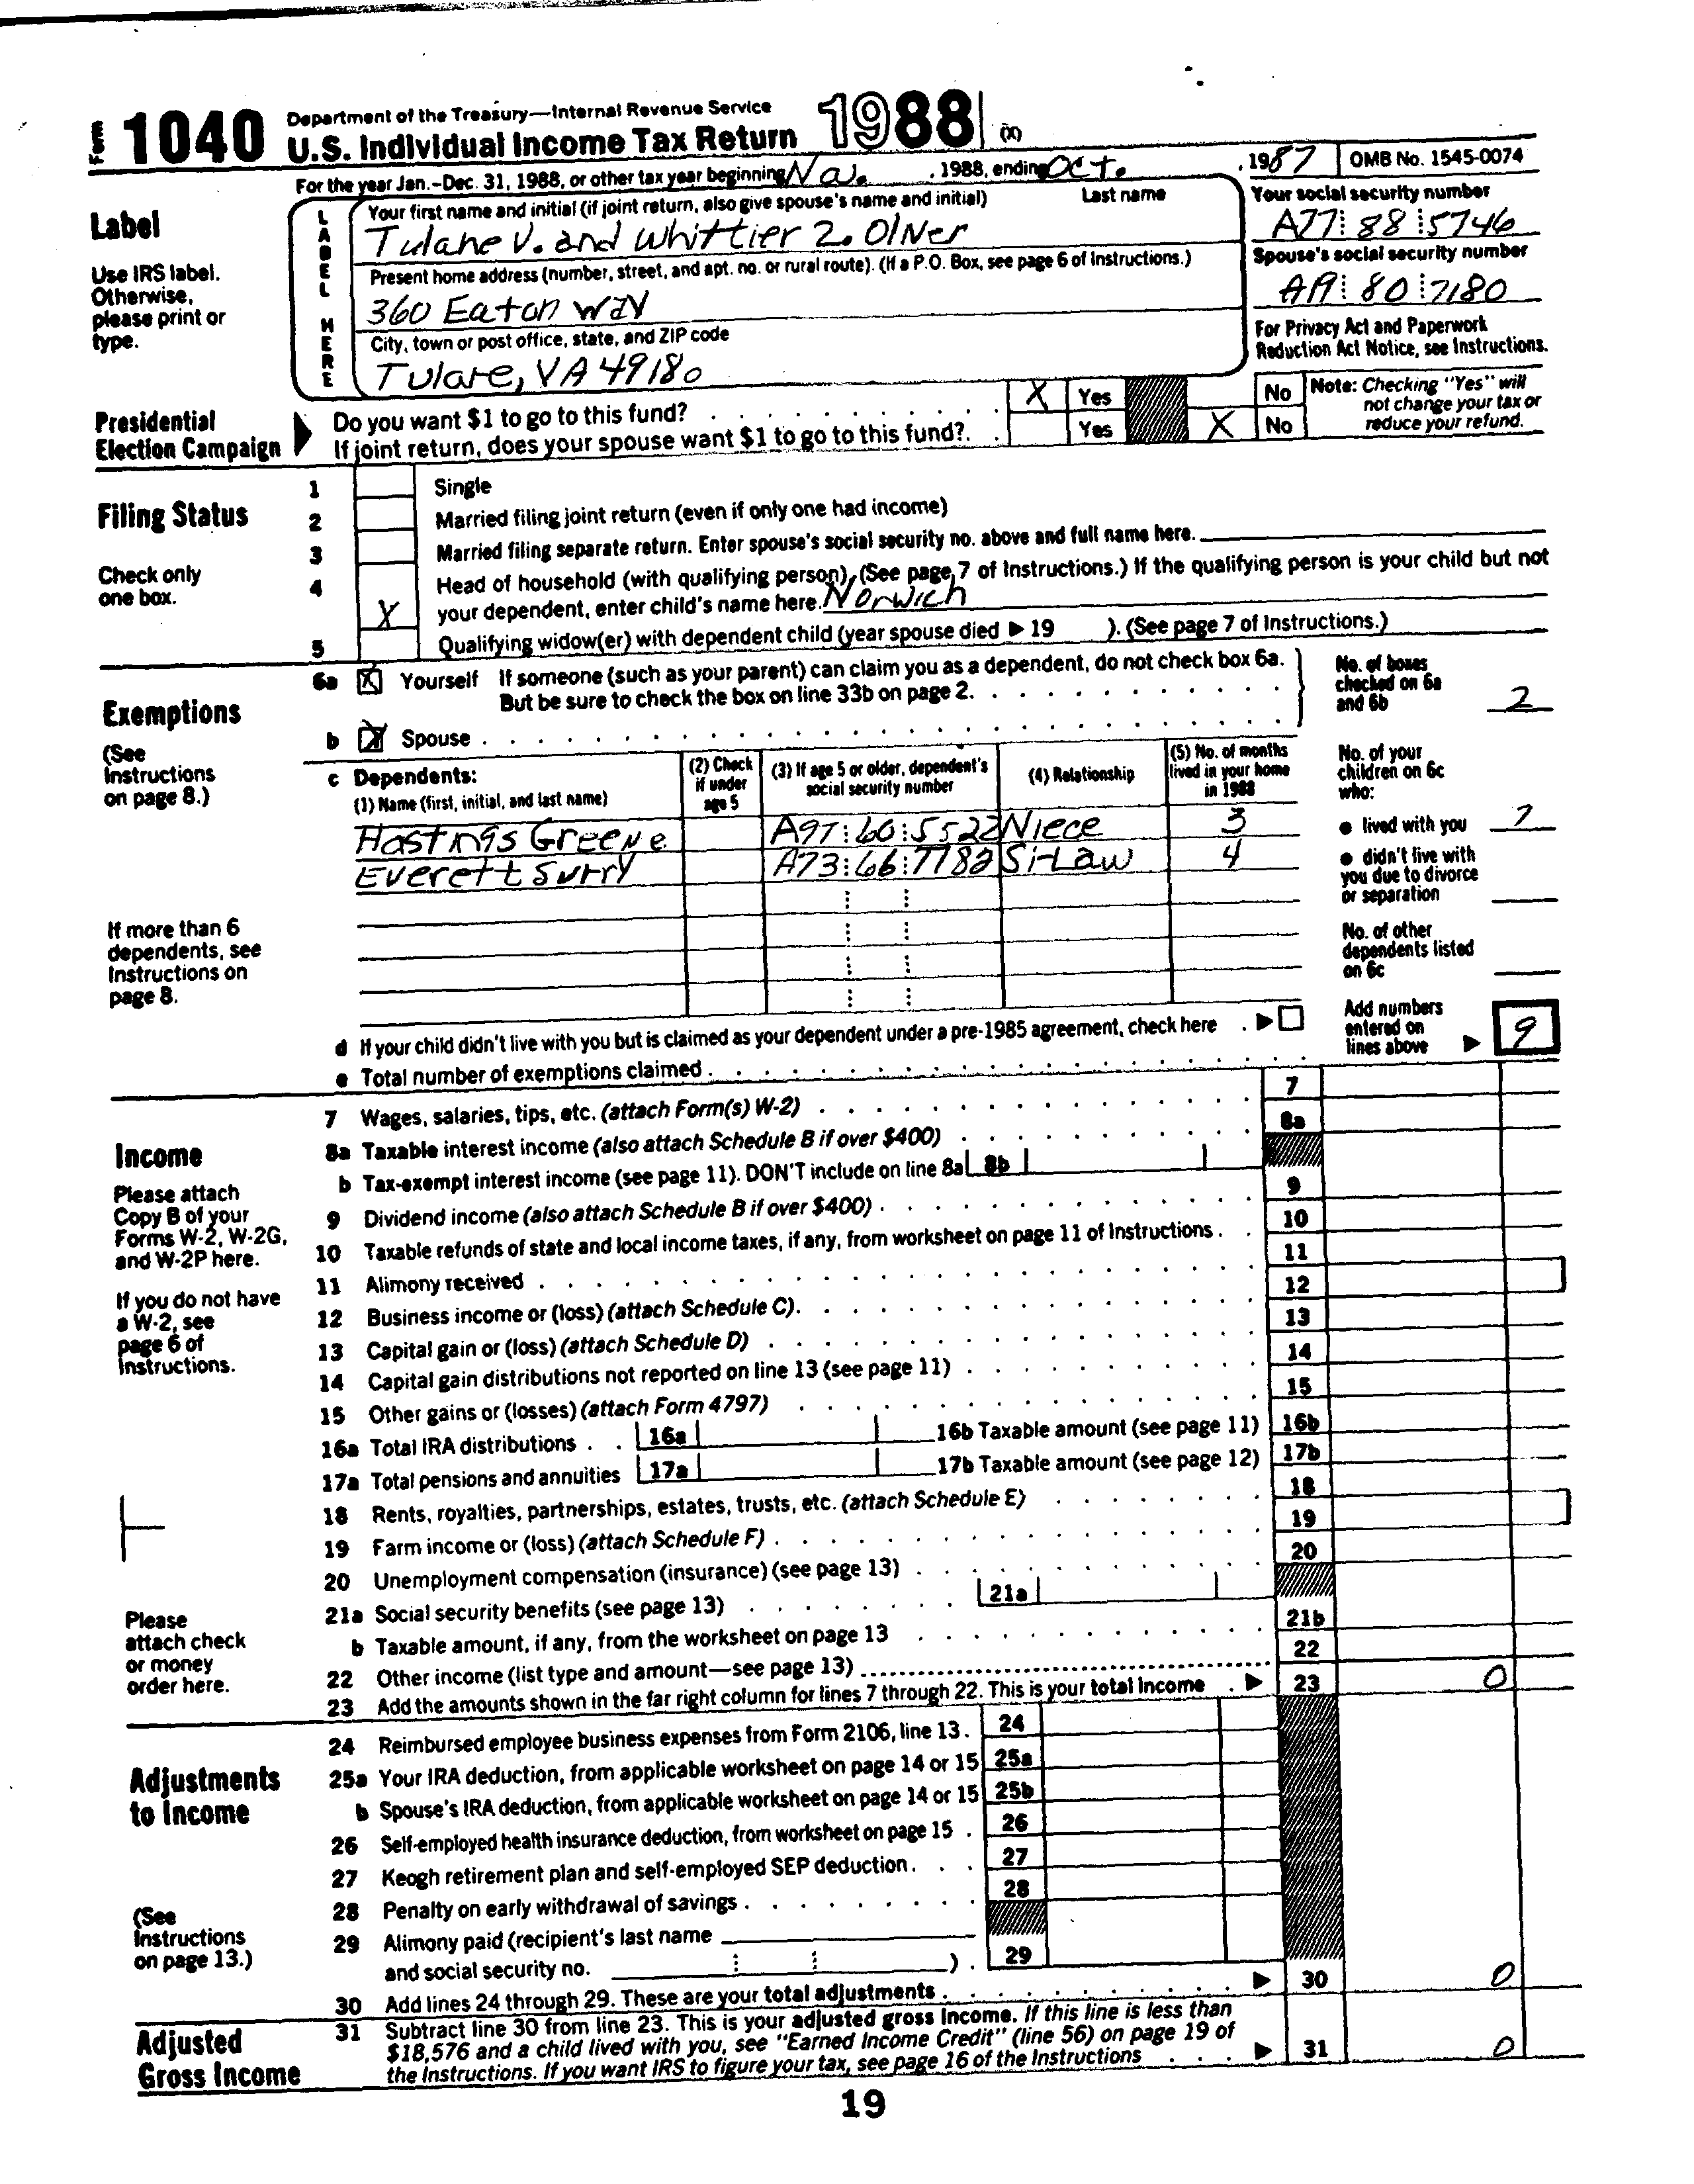 Form 1040 Department of the Treasury—Internal Revenue Service
U.S. Individual Income Tax Return 1988 (X)
For the year Jan.-Dec. 31, 1988, or other tax year beginning , 1988, ending Oct. , 1987 OMB No. 1545-0074
Label
Use IRS label.
Otherwise,
please print or
type.
LABEL HERE
Your first name and initial (if joint return, also give spouse's name and initial) Last name
Tulane V. and Whittier Z. Oliver
Present home address (number, street, and apt. no. or rural route). (If a P.O. Box, see page 6 of Instructions.)
360 Eaton Way
City, town or post office, state, and ZIP code
Tulare, VA 49180
Your social security number
A77 88 5746
Spouse's social security number
80 7180
For Privacy Act and Paperwork
Reduction Act Notice, see Instructions.
Presidential
Election Campaign
Do you want $1 to go to this fund? X Yes No
If joint return, does your spouse want $1 to go to this fund? Yes X No
Note: Checking "Yes" will
not change your tax or
reduce your refund.
Filing Status
Check only
one box.
1 Single
2 Married filing joint return (even if only one had income)
3 Married filing separate return. Enter spouse's social security no. above and full name here.
4 Head of household (with qualifying person). (See page 7 of Instructions.) If the qualifying person is your child but not
X your dependent, enter child's name here. Norwich
5 Qualifying widow(er) with dependent child (year spouse died ▶ 19 ). (See page 7 of Instructions.)
Exemptions
(See
Instructions
on page 8.)
6a X Yourself If someone (such as your parent) can claim you as a dependent, do not check box 6a.
But be sure to check the box on line 33b on page 2.
b X Spouse
No. of boxes
checked on 6a
and 6b 2
c Dependents:
(1) Name (first, initial, and last name)
(2) Check
if under
age 5
(3) If age 5 or older, dependent's
social security number
(4) Relationship
(5) No. of months
lived in your home
in 1988
Hastings Greene A97 60 5522 Niece 3
Everett Surry A73 66 7782 Si-Law 4
If more than 6
dependents, see
Instructions on
page 8.
No. of your
children on 6c
who:
● lived with you 7
● didn't live with
you due to divorce
or separation
No. of other
dependents listed
on 6c
Add numbers
entered on
lines above ▶ 9
d If your child didn't live with you but is claimed as your dependent under a pre-1985 agreement, check here ▶
e Total number of exemptions claimed
Income
Please attach
Copy B of your
Forms W-2, W-2G,
and W-2P here.
If you do not have
a W-2, see
page 6 of
Instructions.
Please
attach check
or money
order here.
7 Wages, salaries, tips, etc. (attach Form(s) W-2) 7
8a Taxable interest income (also attach Schedule B if over $400) 8a
b Tax-exempt interest income (see page 11). DON'T include on line 8a 8b
9 Dividend income (also attach Schedule B if over $400) 9
10 Taxable refunds of state and local income taxes, if any, from worksheet on page 11 of Instructions 10
11 Alimony received 11
12 Business income or (loss) (attach Schedule C) 12
13 Capital gain or (loss) (attach Schedule D) 13
14 Capital gain distributions not reported on line 13 (see page 11) 14
15 Other gains or (losses) (attach Form 4797) 15
16a Total IRA distributions 16a 16b Taxable amount (see page 11) 16b
17a Total pensions and annuities 17a 17b Taxable amount (see page 12) 17b
18 Rents, royalties, partnerships, estates, trusts, etc. (attach Schedule E) 18
19 Farm income or (loss) (attach Schedule F) 19
20 Unemployment compensation (insurance) (see page 13) 20
21a Social security benefits (see page 13) 21a
b Taxable amount, if any, from the worksheet on page 13 21b
22 Other income (list type and amount—see page 13) 22
23 Add the amounts shown in the far right column for lines 7 through 22. This is your total income ▶ 23 0
Adjustments
to Income
(See
Instructions
on page 13.)
24 Reimbursed employee business expenses from Form 2106, line 13. 24
25a Your IRA deduction, from applicable worksheet on page 14 or 15 25a
b Spouse's IRA deduction, from applicable worksheet on page 14 or 15 25b
26 Self-employed health insurance deduction, from worksheet on page 15 26
27 Keogh retirement plan and self-employed SEP deduction 27
28 Penalty on early withdrawal of savings 28
29 Alimony paid (recipient's last name
and social security no. ) 29
30 Add lines 24 through 29. These are your total adjustments ▶ 30 0
Adjusted
Gross Income
31 Subtract line 30 from line 23. This is your adjusted gross income. If this line is less than
$18,576 and a child lived with you, see "Earned Income Credit" (line 56) on page 19 of
the Instructions. If you want IRS to figure your tax, see page 16 of the Instructions ▶ 31 0
19